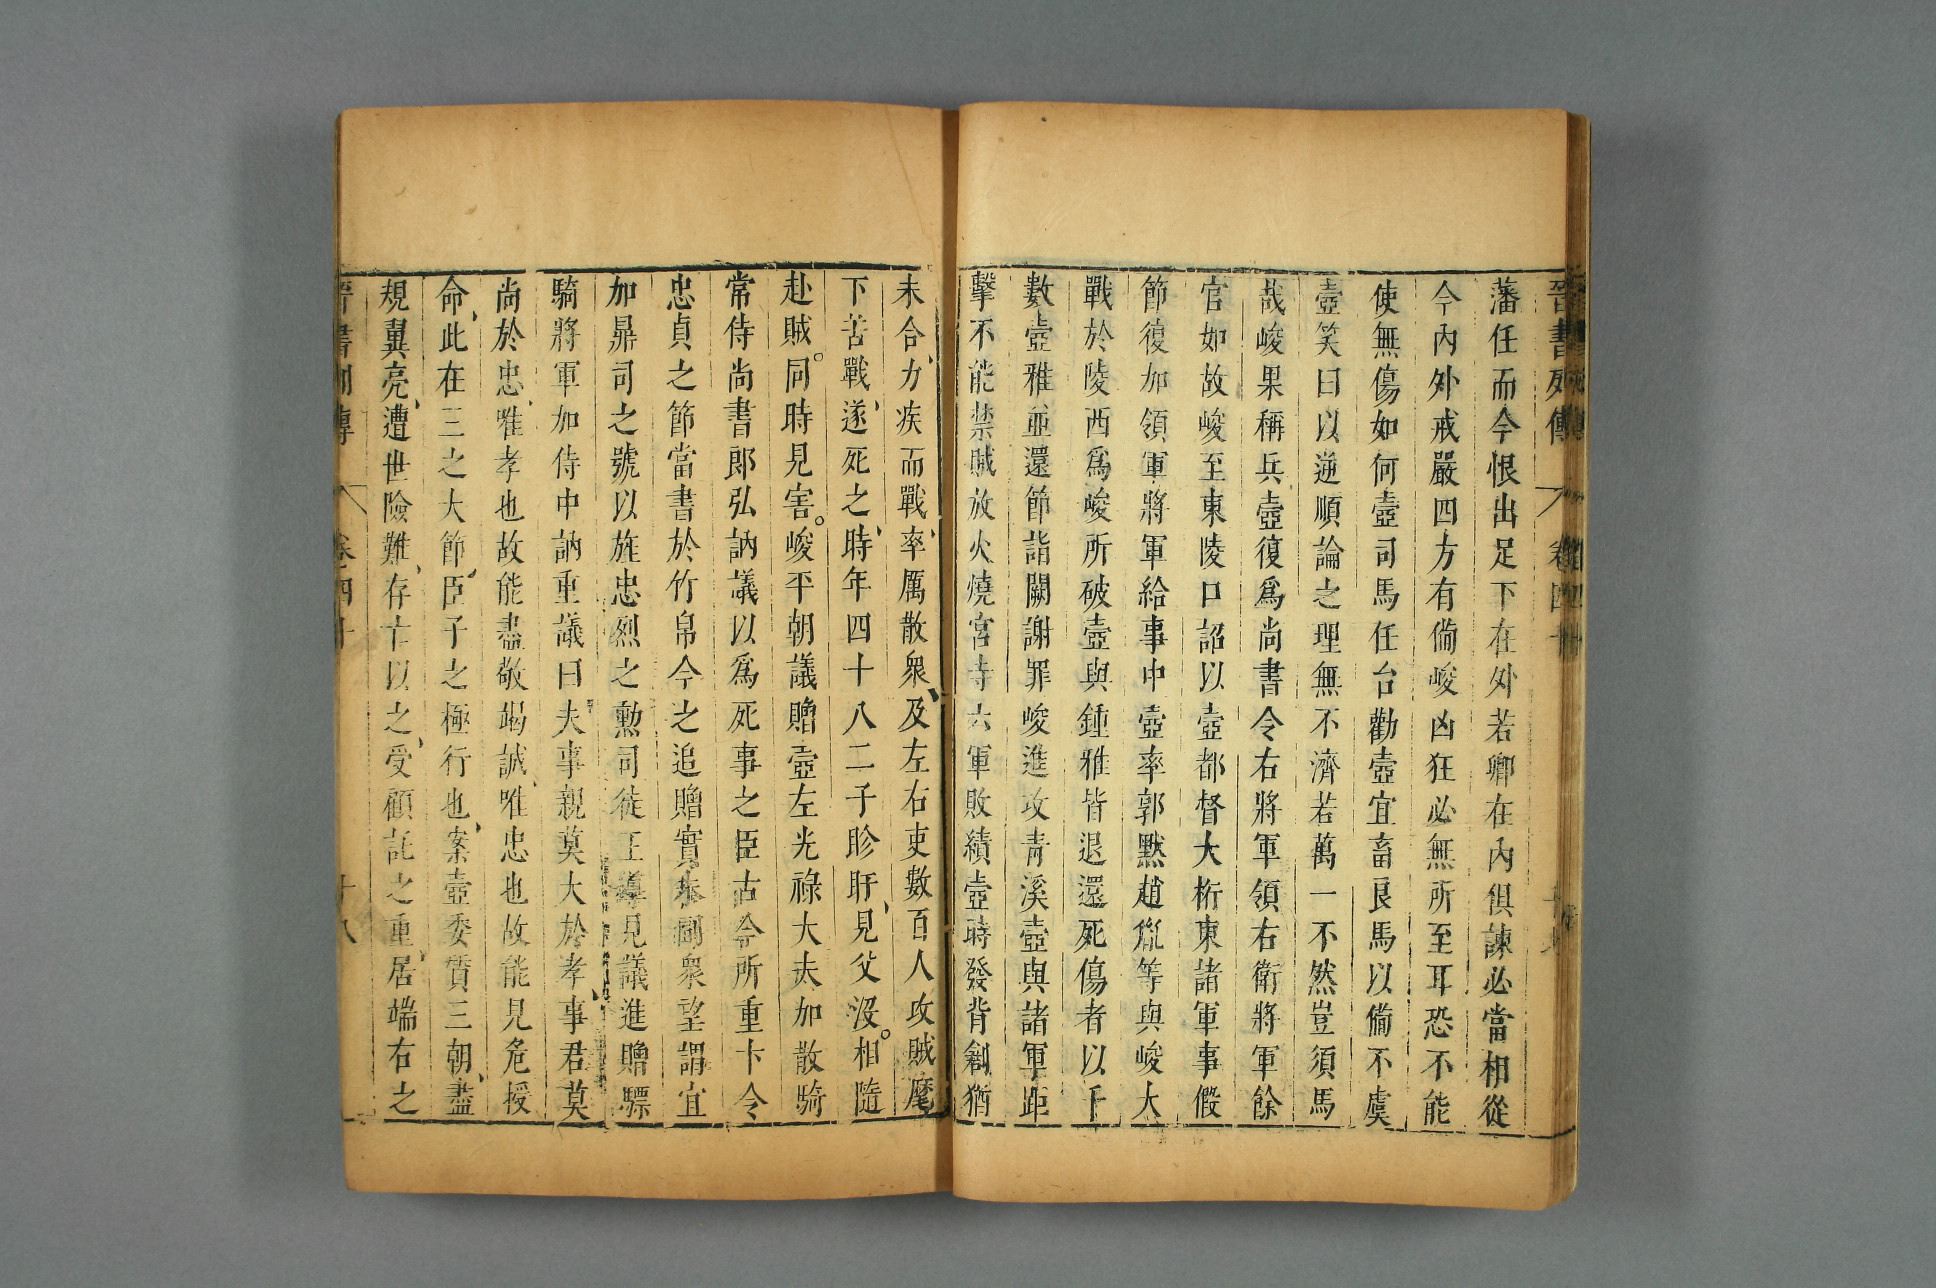 晉書列傳 卷四十
藩任而今恨出足下在外若卿在內俱諫必當相從
今內外戒嚴四方有備峻凶狂必無所至耳恐不能
使無傷如何壼司馬任台勸壼宜畜良馬以備不虞
壼笑曰以逆順論之理無不濟若萬一不然豈須馬
哉峻果稱兵壼復爲尚書令右將軍領右衛將軍餘
官如故峻至東陵口詔以壼都督大桁東諸軍事假
節復加領軍將軍給事中壼率郭默趙胤等與峻大
戰於陵西爲峻所破壼與鍾雅皆退還死傷者以千
數壼雅並還節詣闕謝罪峻進攻青溪壼與諸軍距
擊不能禁賊放火燒宮寺六軍敗績壼時發背創猶
未合力疾而戰率厲散衆及左右吏數百人攻賊麾
下苦戰遂死之時年四十八二子眕盱見父沒相隨
赴賊同時見害峻平朝議贈壼左光祿大夫加散騎
常侍尚書郎弘訥議以爲死事之臣古今所重卞令
忠貞之節當書於竹帛今之追贈實未副衆望謂宜
加鼎司之號以旌忠烈之勳司徒王導見議進贈驃
騎將軍加侍中訥重議曰夫事親莫大於孝事君莫
尚於忠唯孝也故能盡敬竭誠唯忠也故能見危授
命此在三之大節臣子之極行也案壼委質三朝盡
規翼亮遭世險難存亡以之受顧託之重居端右之
晉書列傳 卷四十 十八